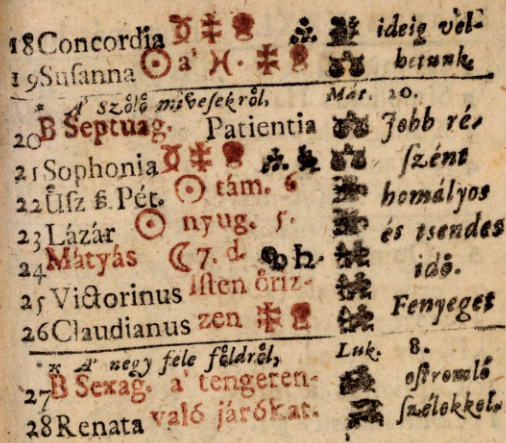 18 Concordia ideig vél-
19 Susanna ☉ a' ♓. hetunk.
* A' szőlő mivesekről, Mát. 20.
20 B Septuag. Patientia Jobb ré-
21 Sophonia szént
22 Üsz s. Pét. ☉ tám. 6 homályos
23 Lázár ☉ nyug. 5. és tsendes
24 Mátyás ☾ 7. d. ☍ ♄. idő.
25 Victorinus Isten őriz-
26 Claudianus zen Fenyeget
* A' negy fele földről, Luk. 8.
27 B Sexag. a' tengeren- ostromló
28 Renata való járókat. szélekkel.